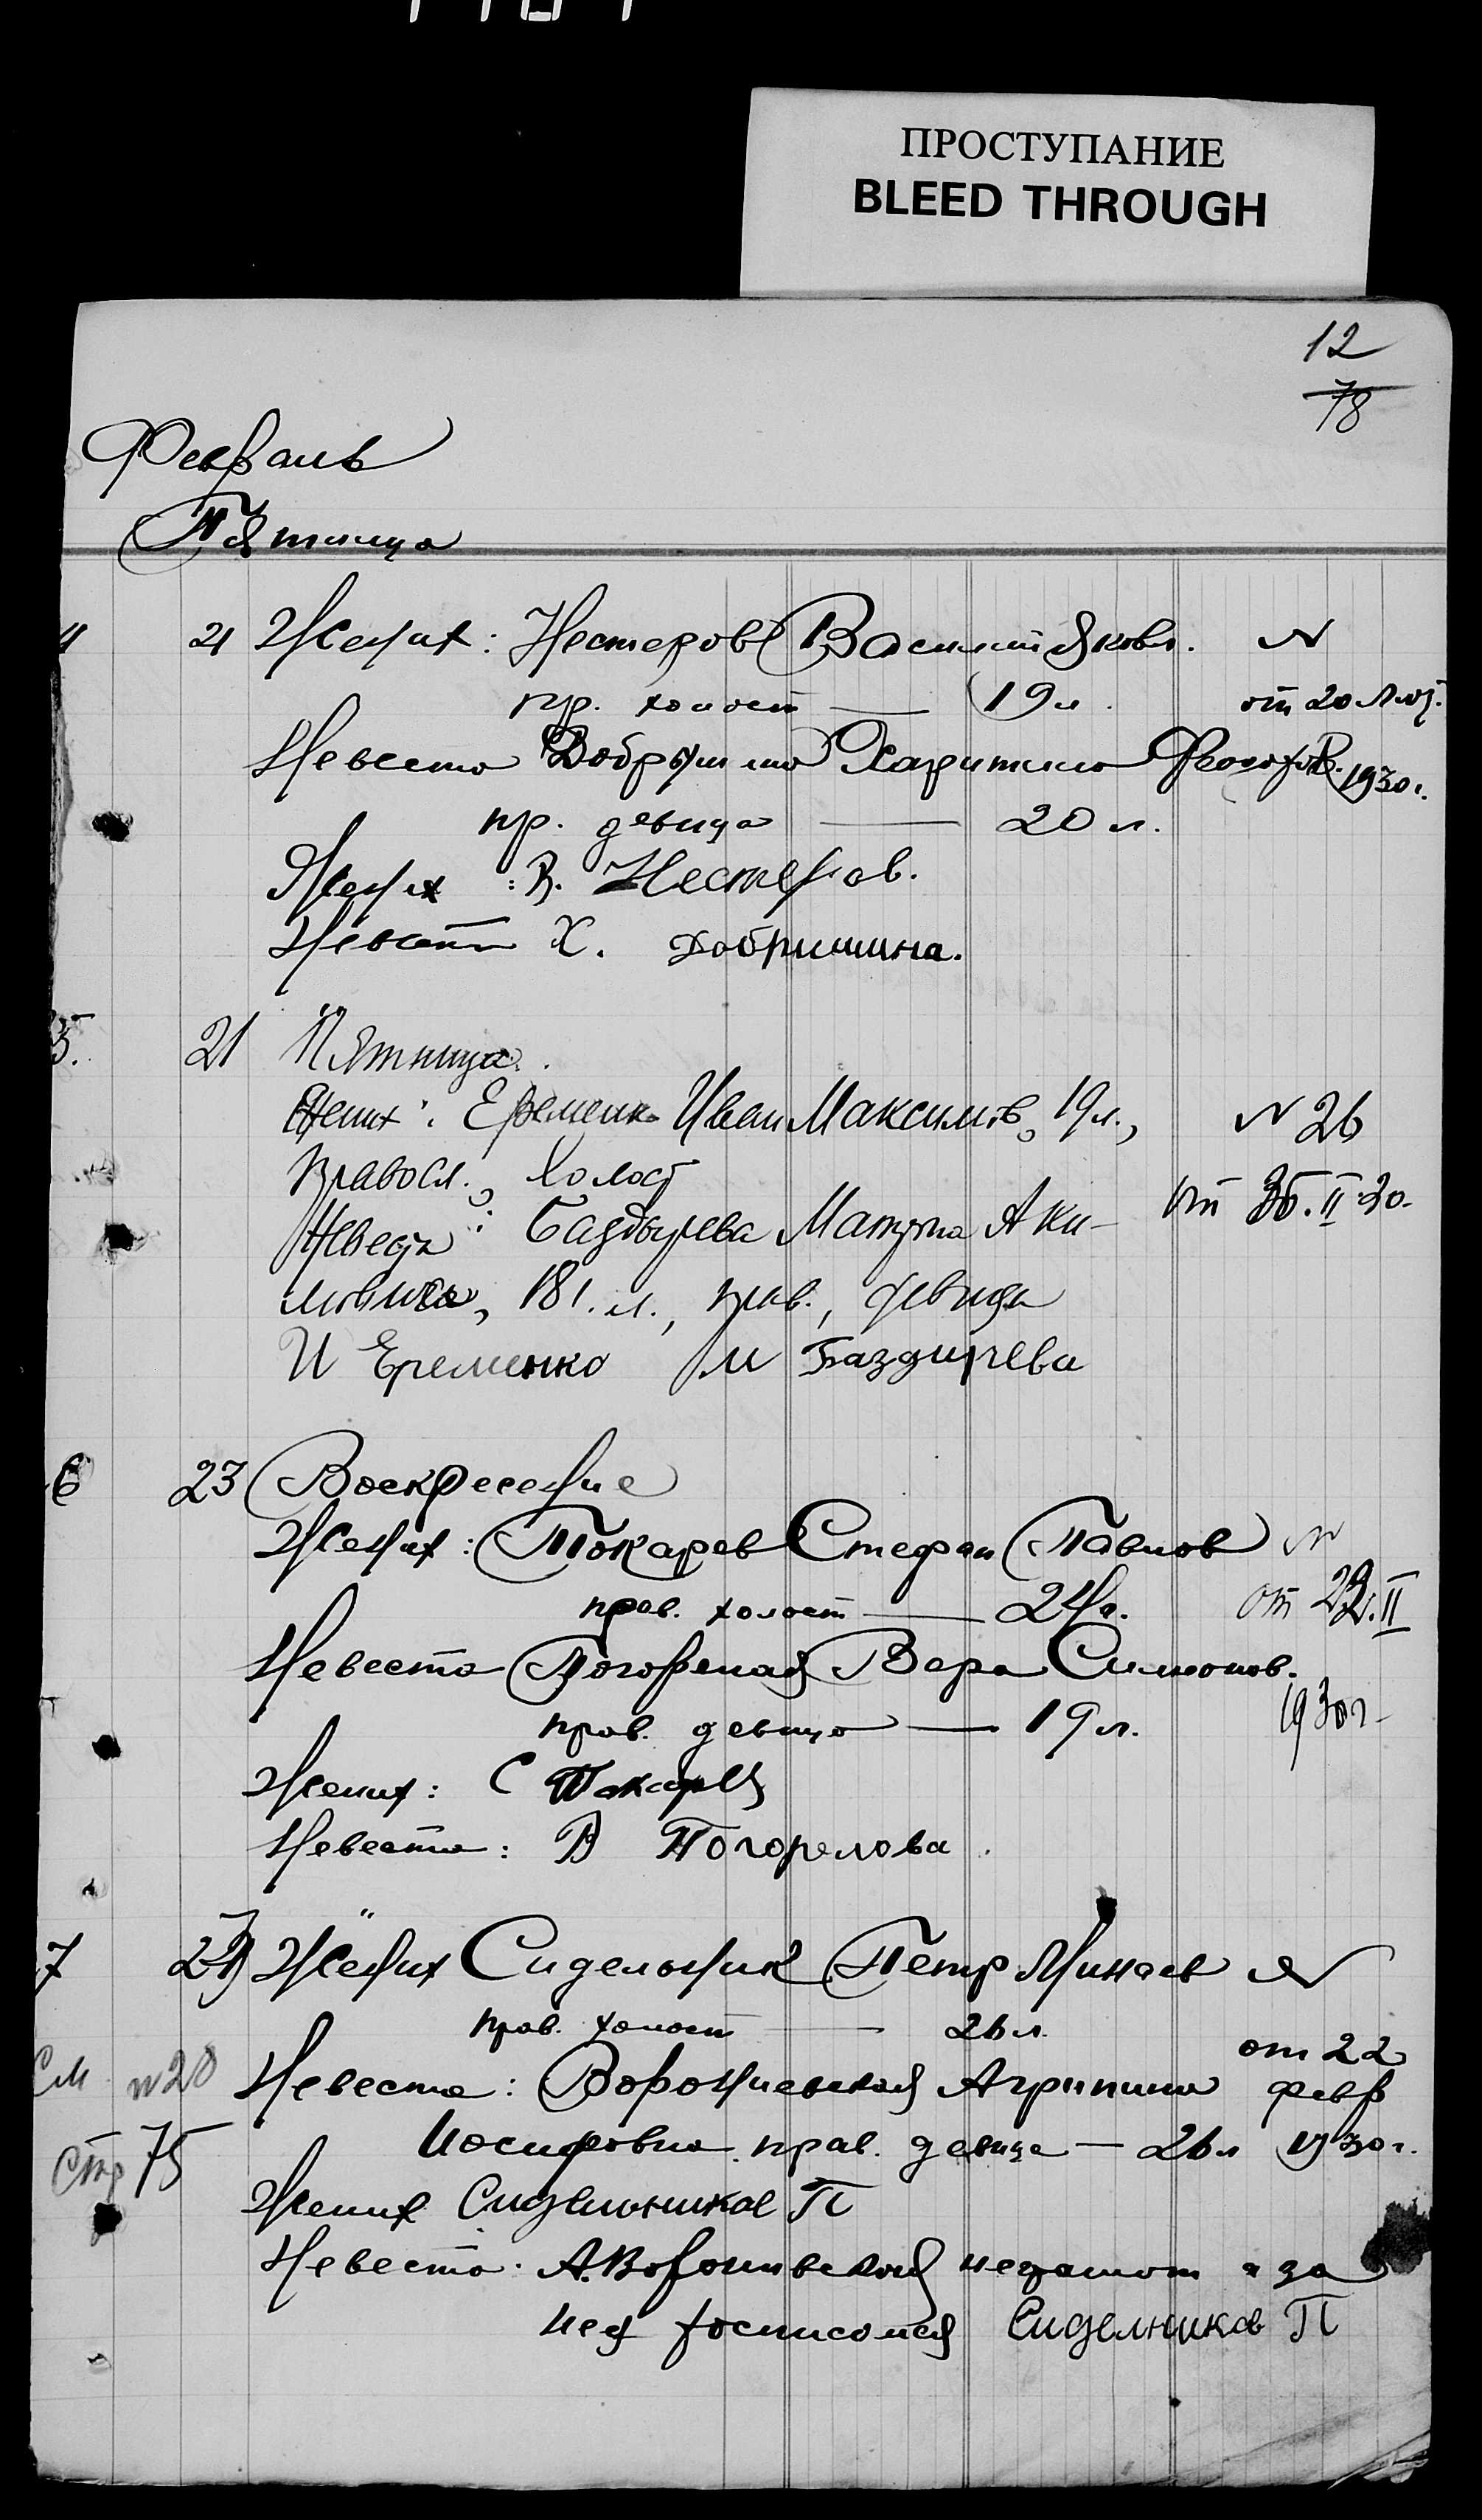 ПРОСТУПАНИЕ
BLEED THROUGH
12
78
Февраль
Пятница
4 21 Жених: Нестеров Василий Яковл. N
пр. холост — 19 л. от 20
Невеста Добрышина Харитина 1930 г.
пр. девица — 20 л.
Жених: В. Нестеров.
Невеста Х. Добришина.
5. 21 Пятница.
Жених: Еременко Иван Максимов, 19 л., N 26
Правосл., холост
от II 30.
Невеста: Баздырева Матрена Аки-
мовна, 18 л., прав., девица
И Еременко М Баздирева
6 23 Воскресение
Жених: Токарев Стефан Павлов N
прав. холост — 24 л. от 22.II
Невеста Погорелая Вера Симонов.
прав. девица — 19 л. 1930 г.
Жених: С Токарев
Невеста: В Погорелова.
7 23 Жених Сидельник Петр Минаев N
прав. холост — 26 л.
от 22
См N 20 Невеста: Ворониевская Агрипина февр
Иосифовна прав. девица — 26 л 1930 г.
Стр 75
Жених Сидельников П
Невеста: А. Воронивская неграмот а за
нея росписался Сиделников П